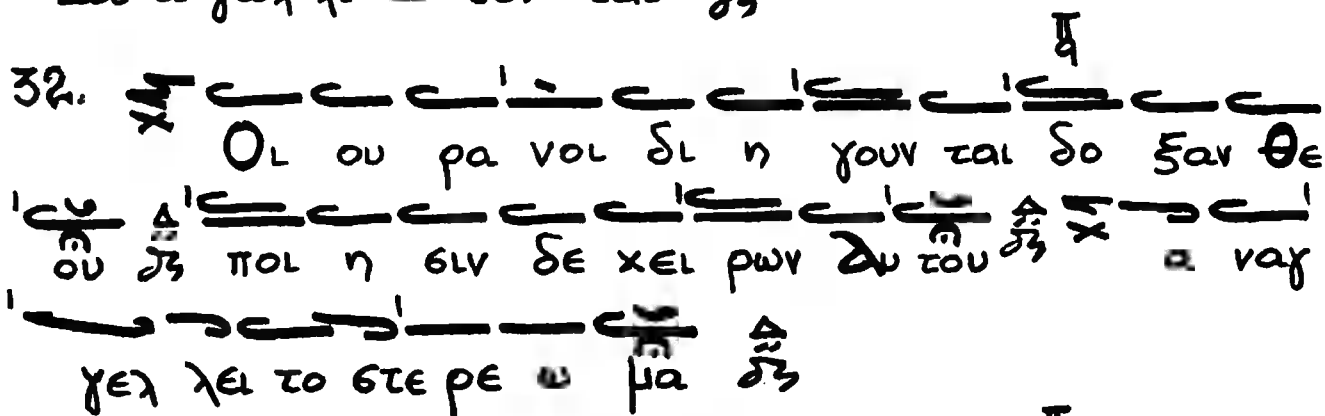 32. Οι ου ρα νοι δι η γουν ται δο ξαν Θε
ου ποι η σιν δε χει ρων Αυ του α ναγ
γελ λει το στε ρε ω μα